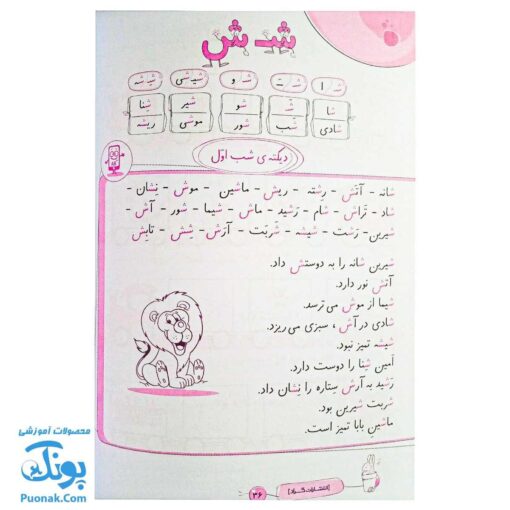 شـ ش
شـ ا شـَ ت شـ و شـ یـ شی شـ یـ شـه
شا شـَ شو شیر شِنا
شادی شَب شور موشی ریشه
دیکته‌ی شب اوّل
شانه - آتَش - رِشته - ریش - ماشین - موش - نِشان -
شاد - تَراش - شام - رَشید - ماش - شیما - شور - آش -
شیرین - زِشت - شیشه - شَربَت - آرَش - شِش - تابِش
شیرین شانه را به دوستش داد.
آتش نور دارد.
شیما از موش می‌ترسد.
شادی در آش ، سبزی می‌ریزد.
شیشه تمیز نبود.
اَمین شِنا را دوست دارد.
رَشید به آرَش ستاره را نِشان داد.
شربت شیرین بود.
ماشینِ بابا تمیز است.
۳۶
محصولات آموزشی
پونک
Puonak.Com